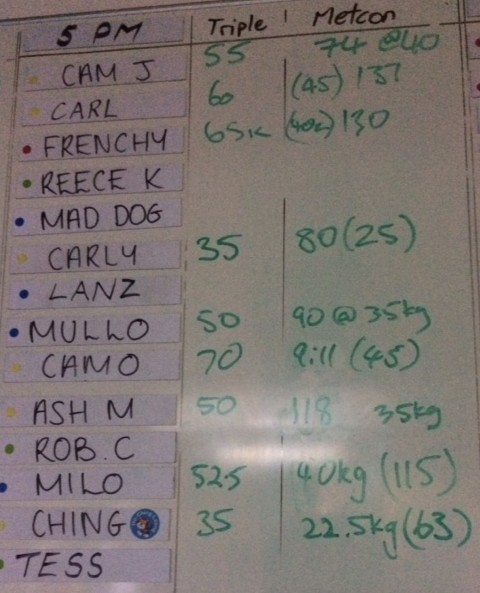 5 PM Triple Metcon
CAM J 55 74 @40
CARL 60 (45) 137
FRENCHY 65k (40k) 130
REECE K
MAD DOG
CARLY 35 80 (25)
LANZ
MULLO 50 90 @ 35kg
CAMO 70 9:11 (45)
ASH M 50 118 35kg
ROB.C
MILO 52.5 40kg (115)
CHING 35 22.5kg (63)
TESS